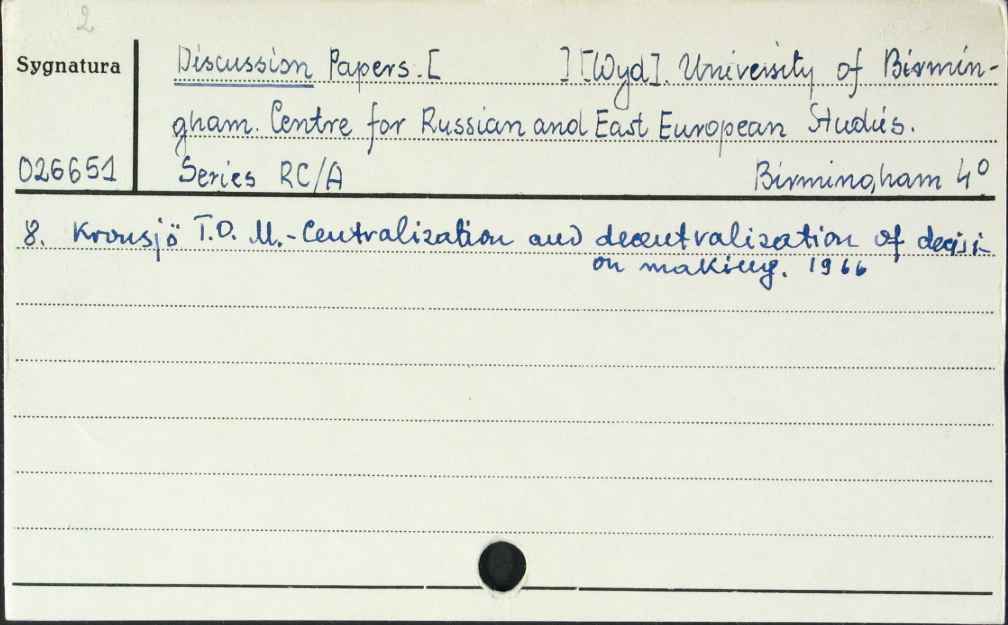 2
Sygnatura
Discussion Papers. [ ] [Wyd]. University of Birmin-
gham. Centre for Russian and East European Studies.
026651
Series RC/A Birmingham 4°
8. Kronsjö T.O.M.- Centralization and decentralization of decisi-
on making. 1966